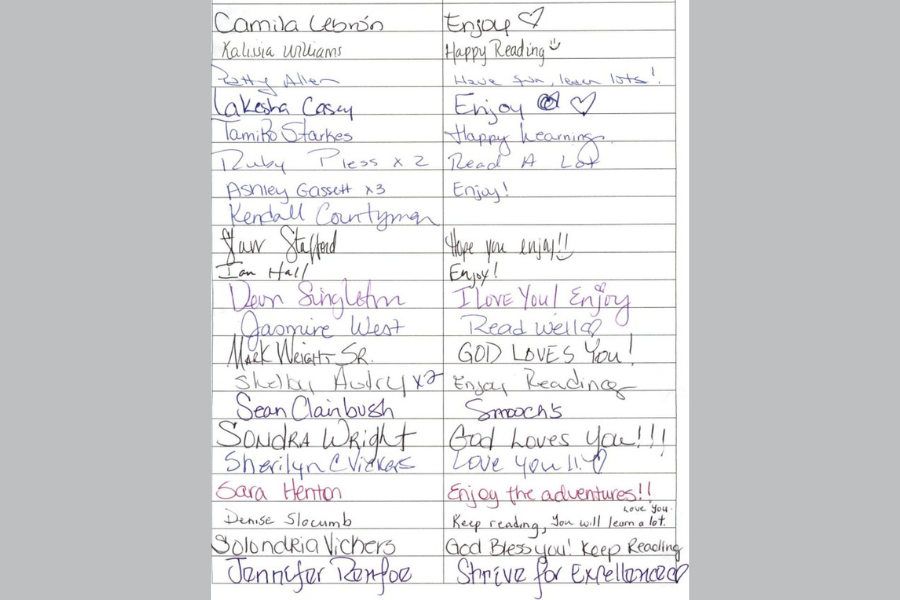 Camila Lebrón Enjoy ♡
Kalissia Williams Happy Reading
Patty Allen Have fun, learn lots!
Lakesha Casey Enjoy ♡
Tamiko Starkes Happy Learning
Ruby Pless x 2 Read A Lot
Ashley Gassett x3 Enjoy!
Kendall Countyman
Stafford Hope you enjoy!!
Ian Hall Enjoy!
Devon Singleton I Love You! Enjoy
Jasmine West Read well ♡
Mark Wright SR. GOD LOVES You!
Shelby Autry x2 Enjoy Reading
Sean Clainbush Smooch's
Sondra Wright God Loves You!!!
Sherilyn C Vickers Love you!! ♡
Sara Henton Enjoy the adventures!!
Love You.
Denise Slocumb Keep reading, You will learn a lot.
Solondria Vichers God Bless you! Keep Reading
Jennifer Renfoe Strive for Excellence ♡